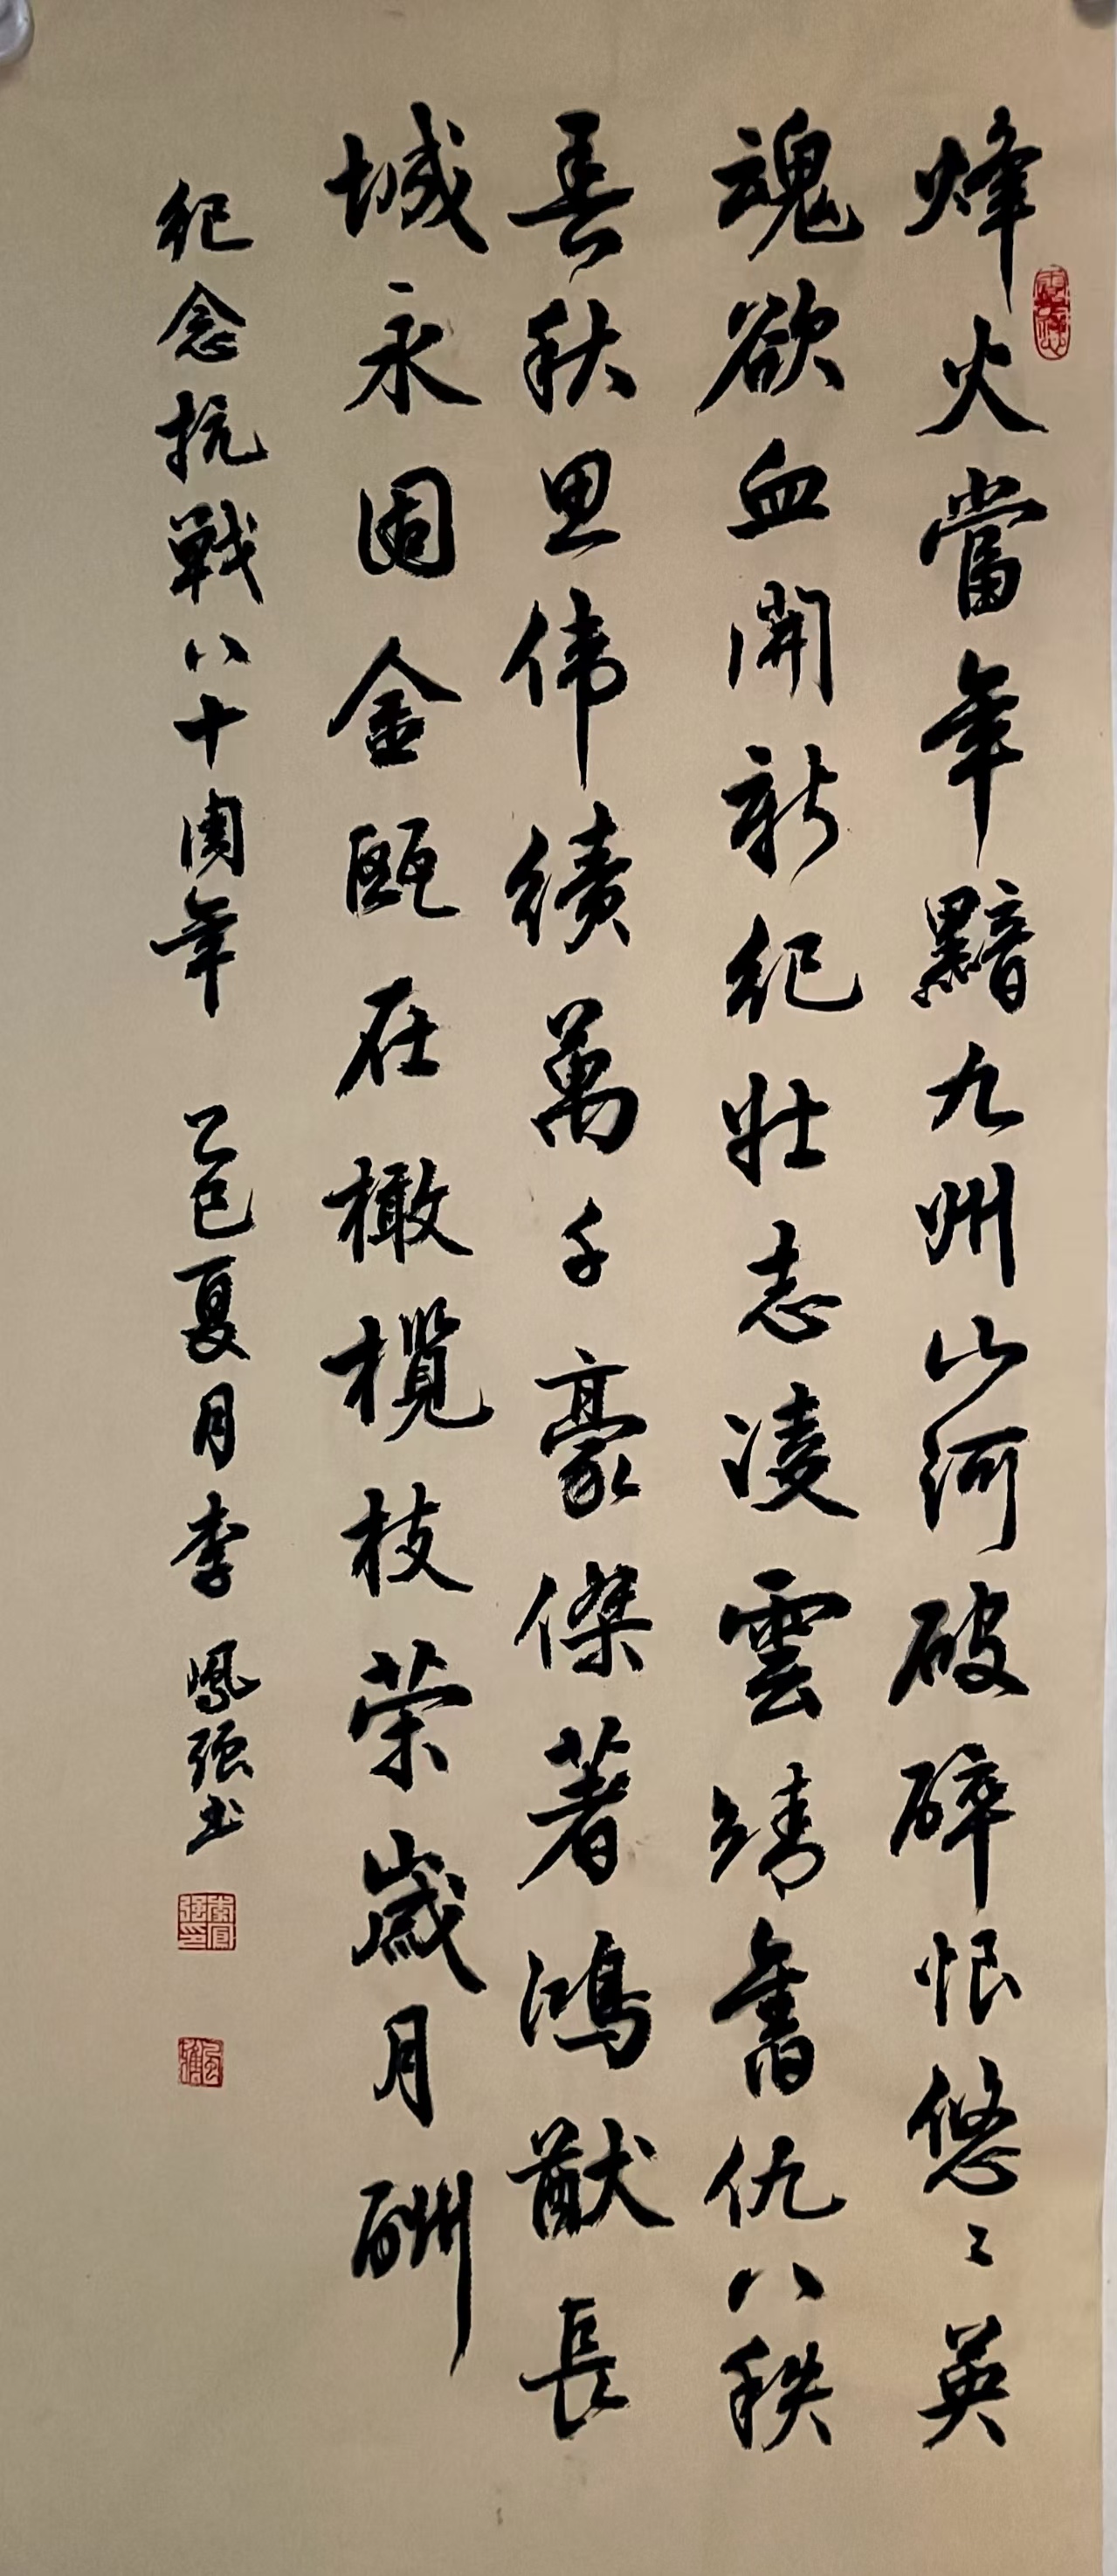 烽火當年黯九州山河破碎恨悠〻英
魂欲血開新纪壮志凌雲靖舊仇八秩
春秋思伟績萬千豪傑著鴻猷長
城永固金甌在橄欖枝荣歲月酬
纪念抗戰八十周年 乙巳夏月李鳳强书
李鳳强印